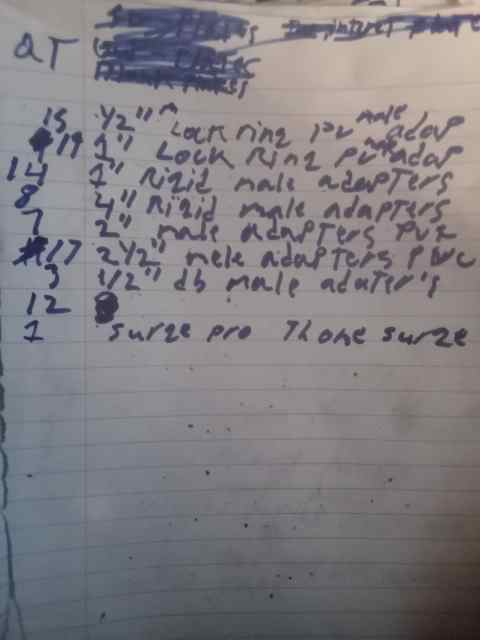 QT
15 1/2" Lock ring PV male adap
19 1" Lock Ring PV male adap
14 1" Rigid male adapters
8 4" Rigid male adapters
7 2" male adapters PVC
17 2 1/2" male adapters PVC
3 1/2" db male adater's
12
1 surge pro Thome surge